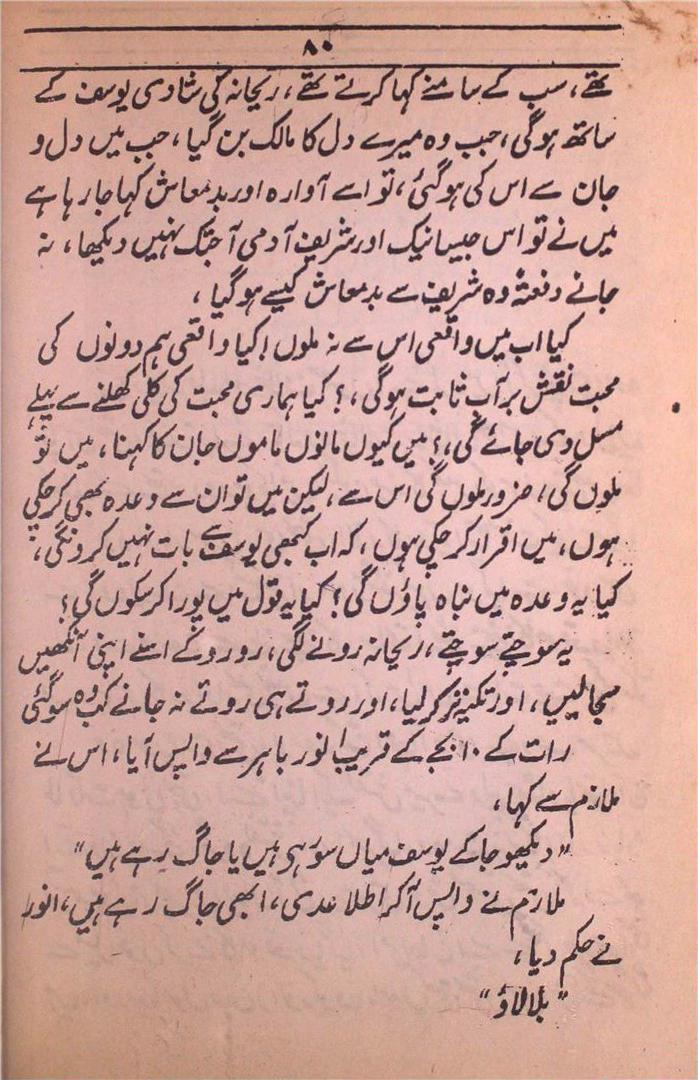 ۸۰
تھے، سب کے سامنے کہا کرتے تھے، ریحانہ کی شادی یوسف کے
ساتھ ہوگی، جب وہ میرے دل کا مالک بن گیا، جب میں دل و
جان سے اس کی ہوگئی، تو اسے آوارہ اور بدمعاش کہا جا رہا ہے
میں نے تو اس جیسا نیک اور شریف آدمی آجتک نہیں دیکھا، نہ
جانے دفعتہً وہ شریف سے بدمعاش کیسے ہوگیا،
کیا اب میں واقعی اس سے نہ ملوں! کیا واقعی ہم دونوں کی
محبت نقش بر آب ثابت ہوگی،؟ کیا ہماری محبت کی کلی کھلنے سے پہلے
مسل دی جائے گی،؟ میں کیوں مانوں ماموں جان کا کہنا، میں تو
ملوں گی، ضرور ملوں گی اس سے، لیکن میں تو ان سے وعدہ بھی کر چکی
ہوں، میں اقرار کر چکی ہوں، کہ اب کبھی یوسف سے بات نہیں کرونگی،
کیا یہ وعدہ میں نباہ پاؤں گی؟ کیا یہ قول میں پورا کر سکوں گی؟
یہ سوچتے سوچتے، ریحانہ رونے لگی، رو رو کے اسنے اپنی آنکھیں
سجالیں، اور تکیہ تر کر لیا، اور روتے ہی روتے نہ جانے کب وہ سوگئی
رات کے ۱۰ بجے کے قریب انور باہر سے واپس آیا، اس نے
ملازم سے کہا،
"دیکھو جا کے یوسف میاں سو رہی ہیں یا جاگ رہے ہیں"
ملازم نے واپس آکر اطلاعدی، ابھی جاگ رہے ہیں، انور
نے حکم دیا،
"بلا لاؤ"